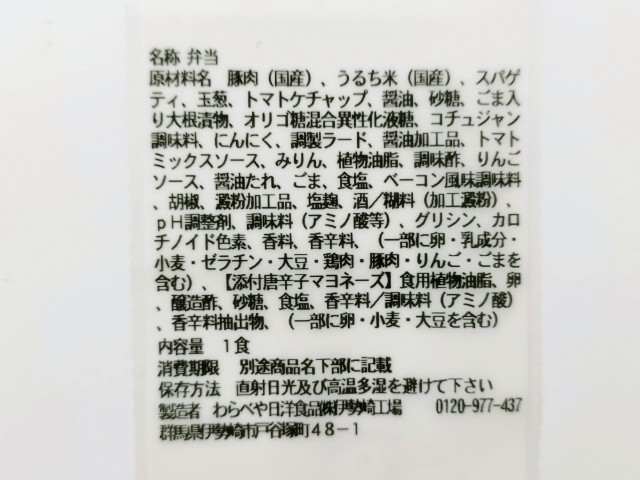 名称 弁当
原材料名　豚肉（国産）、うるち米（国産）、スパゲ
ティ、玉葱、トマトケチャップ、醤油、砂糖、ごま入
り大根漬物、オリゴ糖混合異性化液糖、コチュジャン
調味料、にんにく、調製ラード、醤油加工品、トマト
ミックスソース、みりん、植物油脂、調味酢、りんご
ソース、醤油たれ、ごま、食塩、ベーコン風味調味料
、胡椒、澱粉加工品、塩麹、酒／糊料（加工澱粉）、
ｐＨ調整剤、調味料（アミノ酸等）、グリシン、カロ
チノイド色素、香料、香辛料、（一部に卵・乳成分・
小麦・ゼラチン・大豆・鶏肉・豚肉・りんご・ごまを
含む）、【添付唐辛子マヨネーズ】食用植物油脂、卵
、醸造酢、砂糖、食塩、香辛料／調味料（アミノ酸）
、香辛料抽出物、（一部に卵・小麦・大豆を含む）
内容量　１食
消費期限　別途商品名下部に記載
保存方法　直射日光及び高温多湿を避けて下さい
製造者　わらべや日洋食品㈱伊勢崎工場　0120-977-437
群馬県伊勢崎市戸谷塚町４８－１